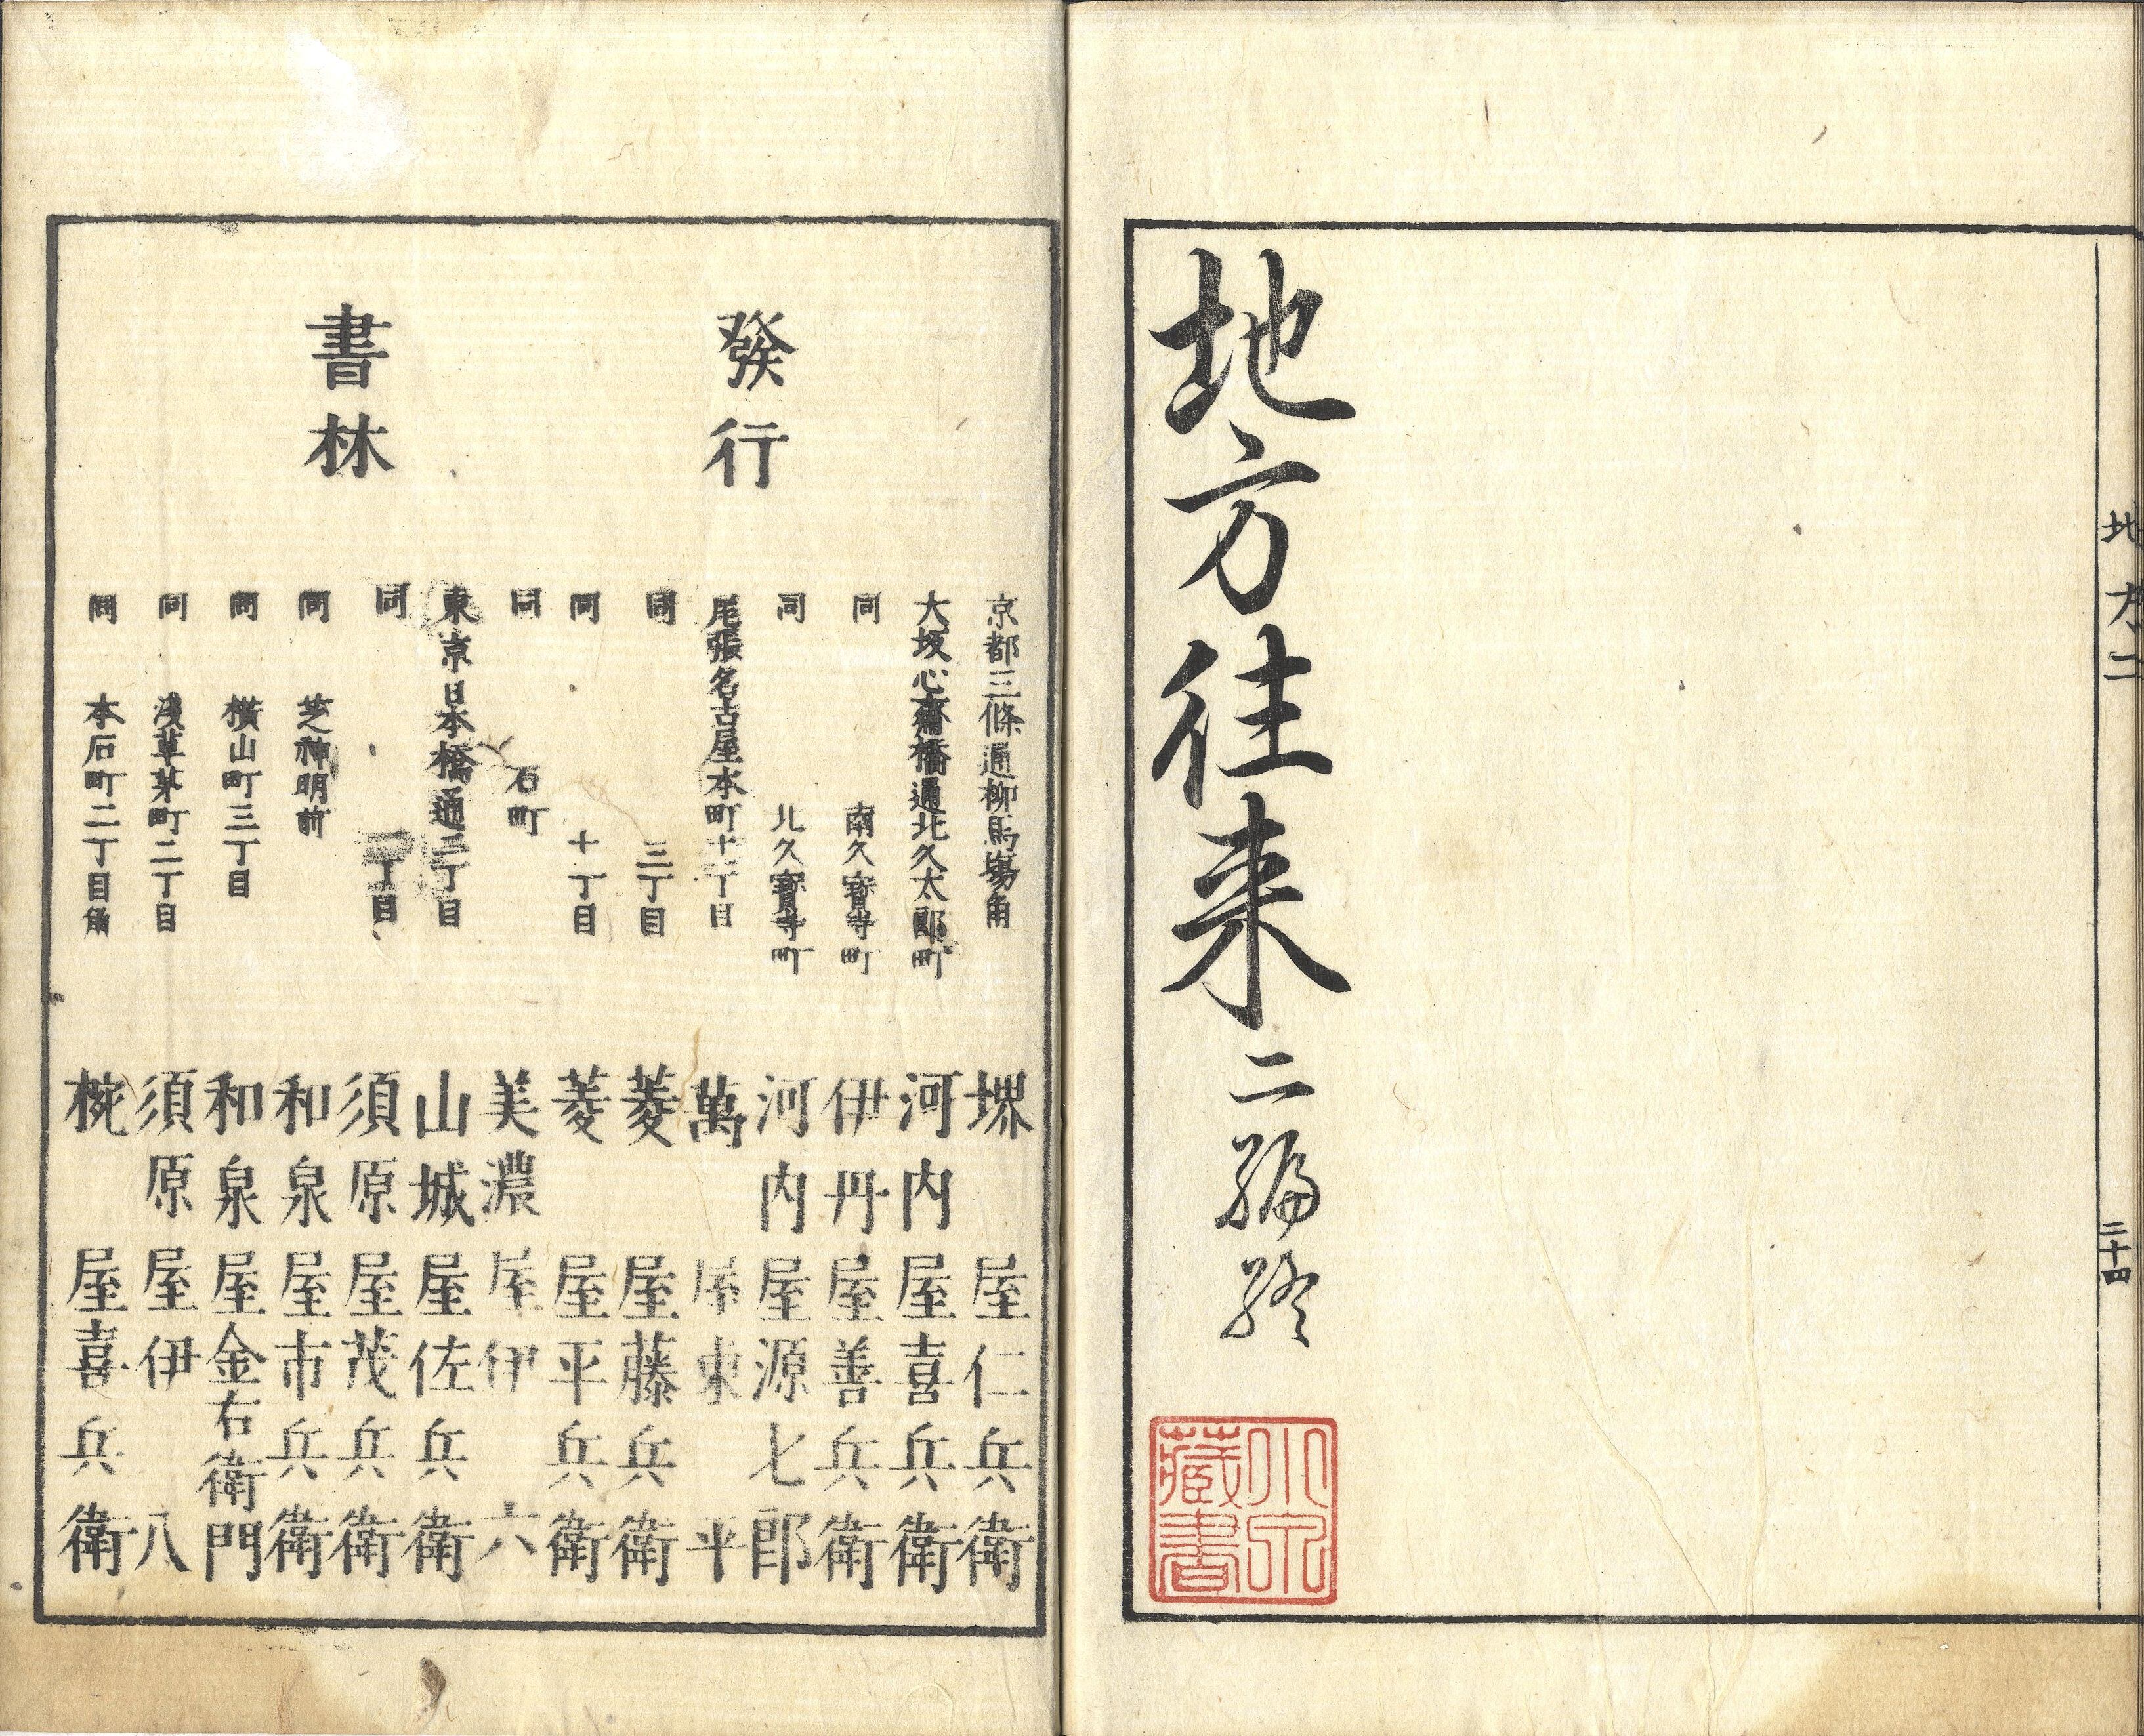 地方二
二十四
地方往来二編終
小穴
藏書
發行
書林
京都三條通柳馬場角 堺屋仁兵衛
大坂心齋橋通北久太郎町 河内屋喜兵衛
同 南久寶寺町 伊丹屋善兵衛
同 北久寶寺町 河内屋源七郎
尾張名古屋本町十一丁目 萬屋東平
同 三丁目 菱屋藤兵衛
同 十一丁目 菱屋平兵衛
同 石町 美濃屋伊六
東京日本橋通二丁目 山城屋佐兵衛
同 一丁目 須原屋茂兵衛
同 芝神明前 和泉屋市兵衛
同 横山町三丁目 和泉屋金右衛門
同 淺草茅町二丁目 須原屋伊八
同 本石町二丁目角 椀屋喜兵衛